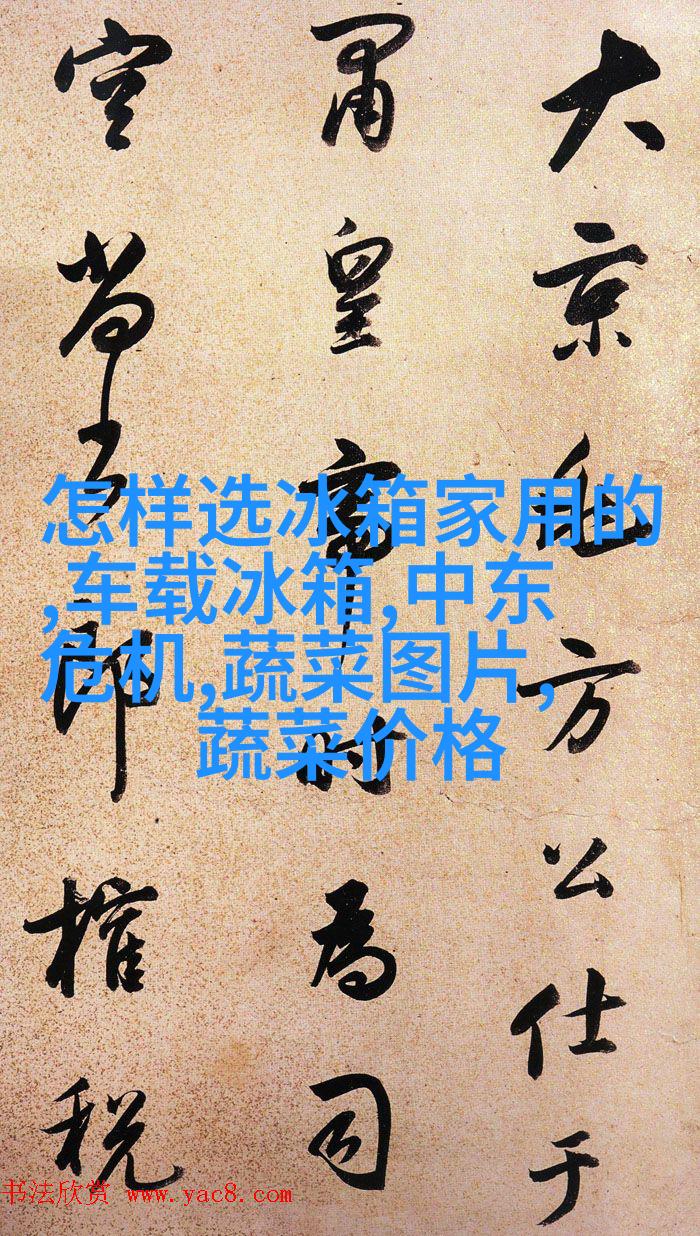 大京兆方公仕于
周皇帝时為司
空尚书郎榷税
怎样选冰箱家用的
,车载冰箱,中东
危机,蔬菜图片,
蔬菜价格
书法欣赏 www.yac8.com